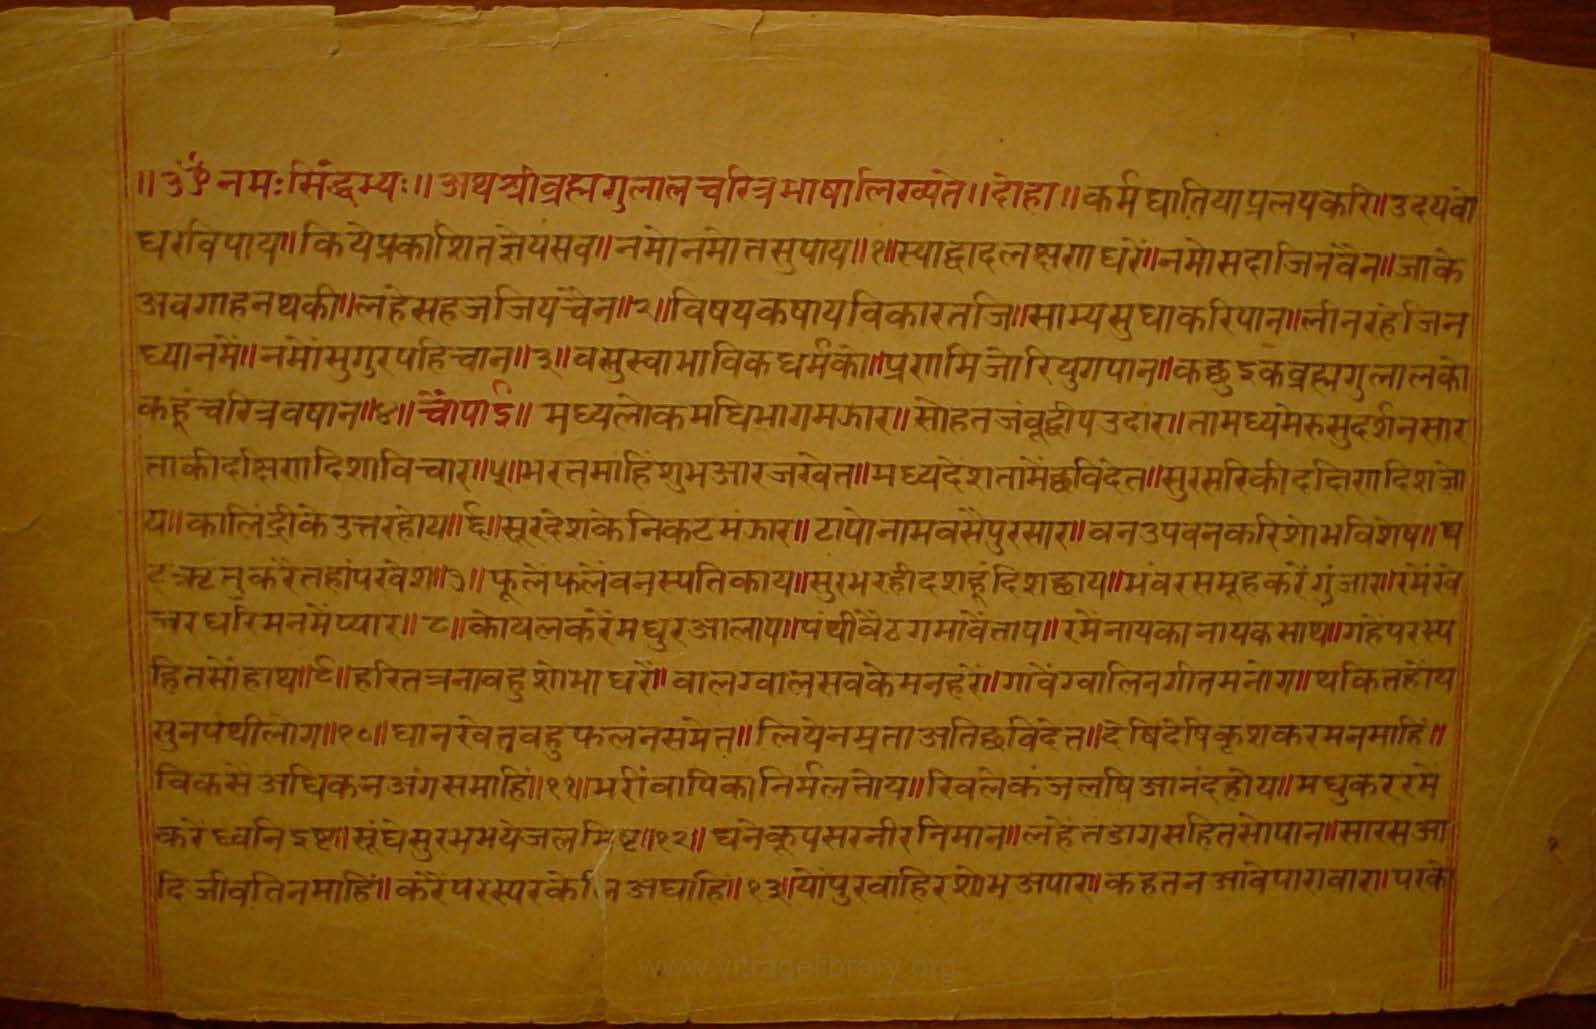 ॥ॐ नमः सिद्धभ्यः॥ अथ श्रीब्रह्मगुलालचरित्रभाषा लिख्यते॥ दोहा॥ कर्मघातियाप्रलयकरि॥ उदयवो
धरविपाय॥ कियेप्रकाशितज्ञेयसव॥ नमोनमोतसुपाय॥१॥ स्याद्वादलक्षणधरें॥ नमोसदाजिनवैन॥ जाके
अवगाहनथकी॥ लहेसहजजियचैन॥२॥ विषयकषायविकारतजि॥ साम्यसुधाकरिपान॥ लीनरहंजिन
ध्यानमें॥ नमोंसुगुरपहिचान॥३॥ वसुस्वाभाविकधर्मको॥ प्रणमिजोरियुगपान॥ कछुइकब्रह्मगुलालको
कहूंचरित्रवषान॥४॥ चौपाई॥ मध्यलोकमधिभागमझार॥ सोहतजंवूद्वीपउदार॥ तामध्यमेरुसुदर्शनसार
ताकीदक्षिणदिशाविचार॥५॥ भरतमांहिंशुभआरजखेत॥ मध्यदेशतामेंछविदेत॥ सुरसरिकीदक्षिणदिशजो
य॥ कालिंद्रीकेउत्तरहोय॥६॥ सूरदेशकेनिकटमंझार॥ टापोनामवसैपुरसार॥ वनउपवनकरिशोभविशेष॥ ष
टऋतुकरेंतहांपरवेश॥७॥ फूलेंफलेंवनस्पतिकाय॥ सुरभरहीदशहूंदिशछाय॥ भंवरसमूहकरेंगुंजार॥ रमेंखे
चरधरिमनमेंप्यार॥८॥ कोयलकरेंमधुरआलाप॥ पंथीवैठगमावेंताप॥ रमेंनायकानायकसाथ॥ गहेपरस्प
हितसोंहाथ॥९॥ हरितत्रनावहुशोभाधरें॥ वालग्वालसवकेमनहरें॥ गावेंग्वालिनगीतमनोग॥ थकितहोय
सुनपंथीलोग॥१०॥ धानखेतवहुफलनसमेत॥ लियेनम्रताअतिछविदेत॥ देषिदेषिकृशकरमनमांहिं॥
विकसेअधिकनअंगसमाहिं॥११॥ भरींवापिकानिर्मलतोय॥ खिलेकंजलषिआनंदहोय॥ मधुकररमें
करेंध्वनिइष्ट॥ सूंघेसुरभभयेजलमिष्ट॥१२॥ घनेकूपसरनीरनिमान॥ लहेंतडागसहितसोपान॥ सारसआ
दिजीवतिनमाहिं॥ करेंपरस्परकेलिअघाहिं॥१३॥ योंपुरवाहिरशोभअपार॥ कहतनआवेपारावार॥ परको
१
www.vitragelibrary.org